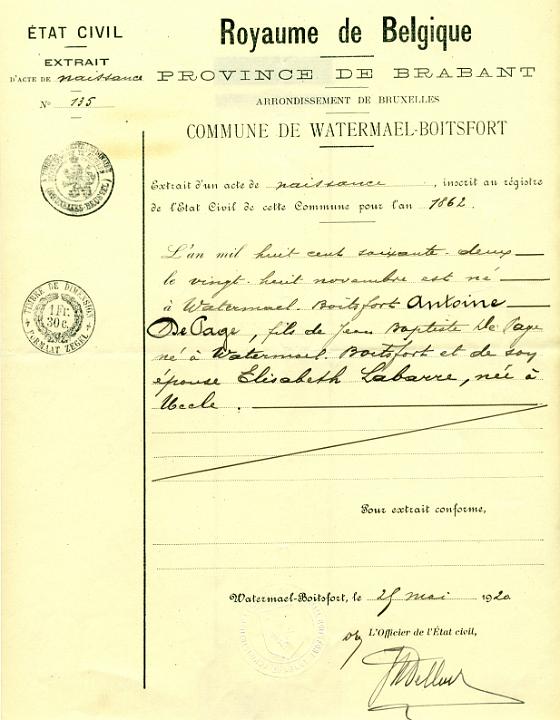 ÉTAT CIVIL
EXTRAIT
D'ACTE DE naissance
N° 135
Royaume de Belgique
PROVINCE DE BRABANT
ARRONDISSEMENT DE BRUXELLES
COMMUNE DE WATERMAEL-BOITSFORT
Extrait d'un acte de naissance, inscrit au régistre
de l'Etat Civil de cette Commune pour l'an 1862.
TIMBRE DE DIMENSION
1 Fr.
30 c.
FORMAAT ZEGEL
L'an mil huit cent soixante-deux
le vingt-huit novembre est né
à Watermael-Boitsfort Antoine
De Cage, fils de Jean Baptiste De Cage
né à Watermael-Boitsfort et de son
épouse Elisabeth Labarre, née à
Uccle.
Pour extrait conforme,
Watermael-Boitsfort, le 25 mai 1920
L'Officier de l'État civil,